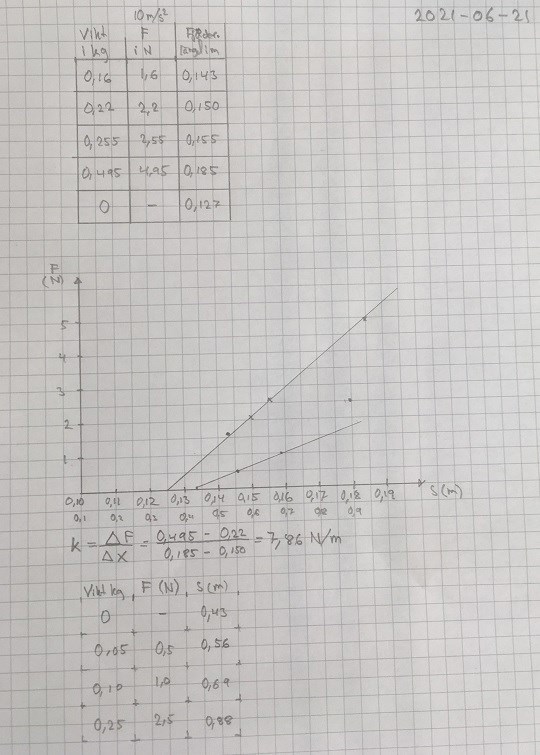 2021-06-21
10 m/s²
Vikt F Fjäder.
i kg i N längd i m
0,16 1,6 0,143
0,22 2,2 0,150
0,255 2,55 0,155
0,495 4,95 0,185
0 - 0,127
F
(N)
5
4
3
2
1
0,10 0,11 0,12 0,13 0,14 0,15 0,16 0,17 0,18 0,19 S(m)
0,1 0,2 0,3 0,4 0,5 0,6 0,7 0,8 0,9
k = ΔF/ΔX = (0,495 - 0,22)/(0,185 - 0,150) = 7,86 N/m
Vikt kg F (N) S(m)
0 - 0,43
0,05 0,5 0,56
0,10 1,0 0,69
0,25 2,5 0,88